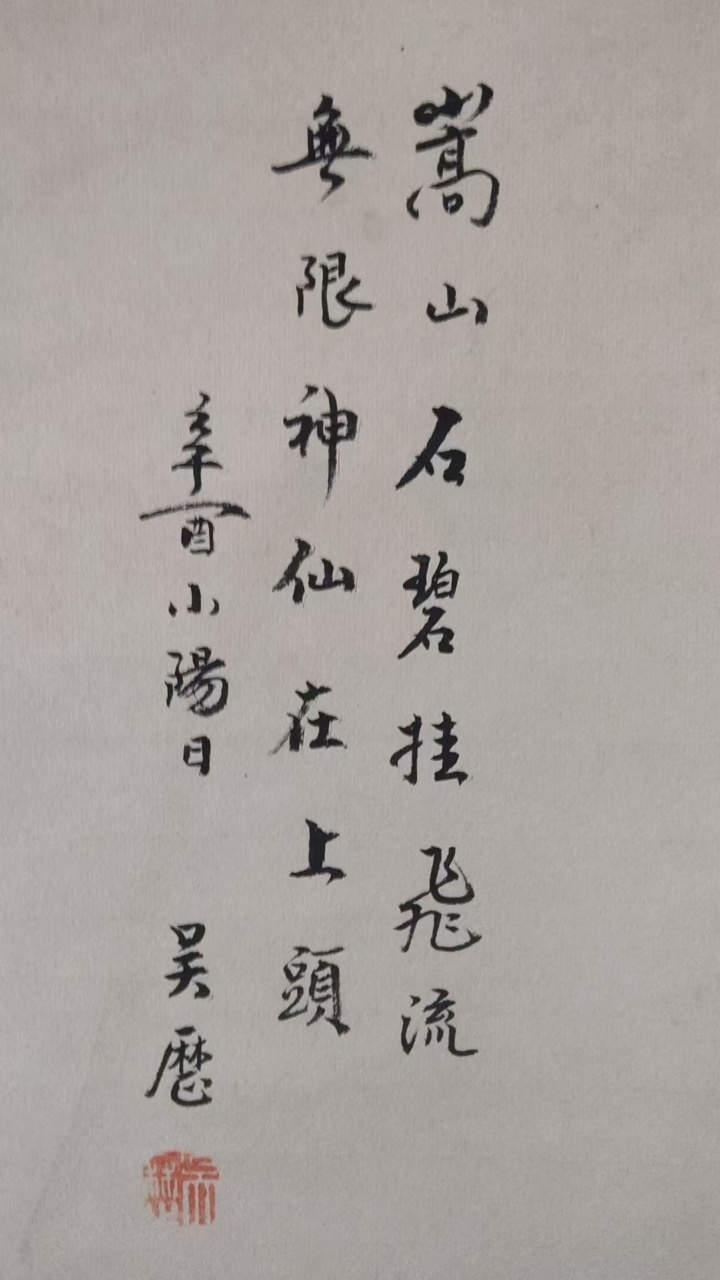 嵩山石碧挂飛流
無限神仙在上頭
辛酉小陽日
吴歷